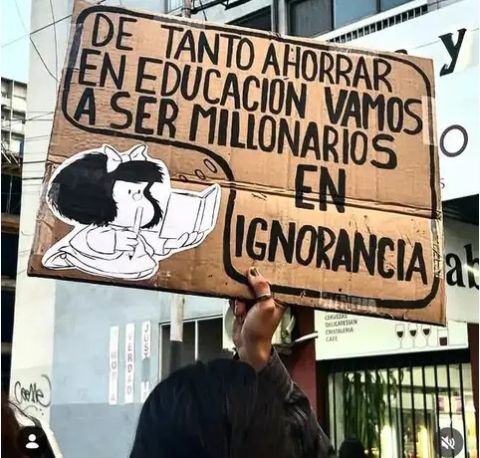 DE TANTO AHORRAR
EN EDUCACIÓN VAMOS
A SER MILLONARIOS
EN
IGNORANCIA
y
O
ab
CERVEZAS
DELICATESSEN
CRISTALERIA
CAFE
VERDAD
JUST